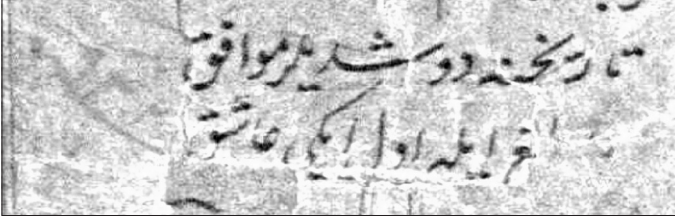 تاریخنه دوشدیلر موافق
ایله اول ایکی عاشق